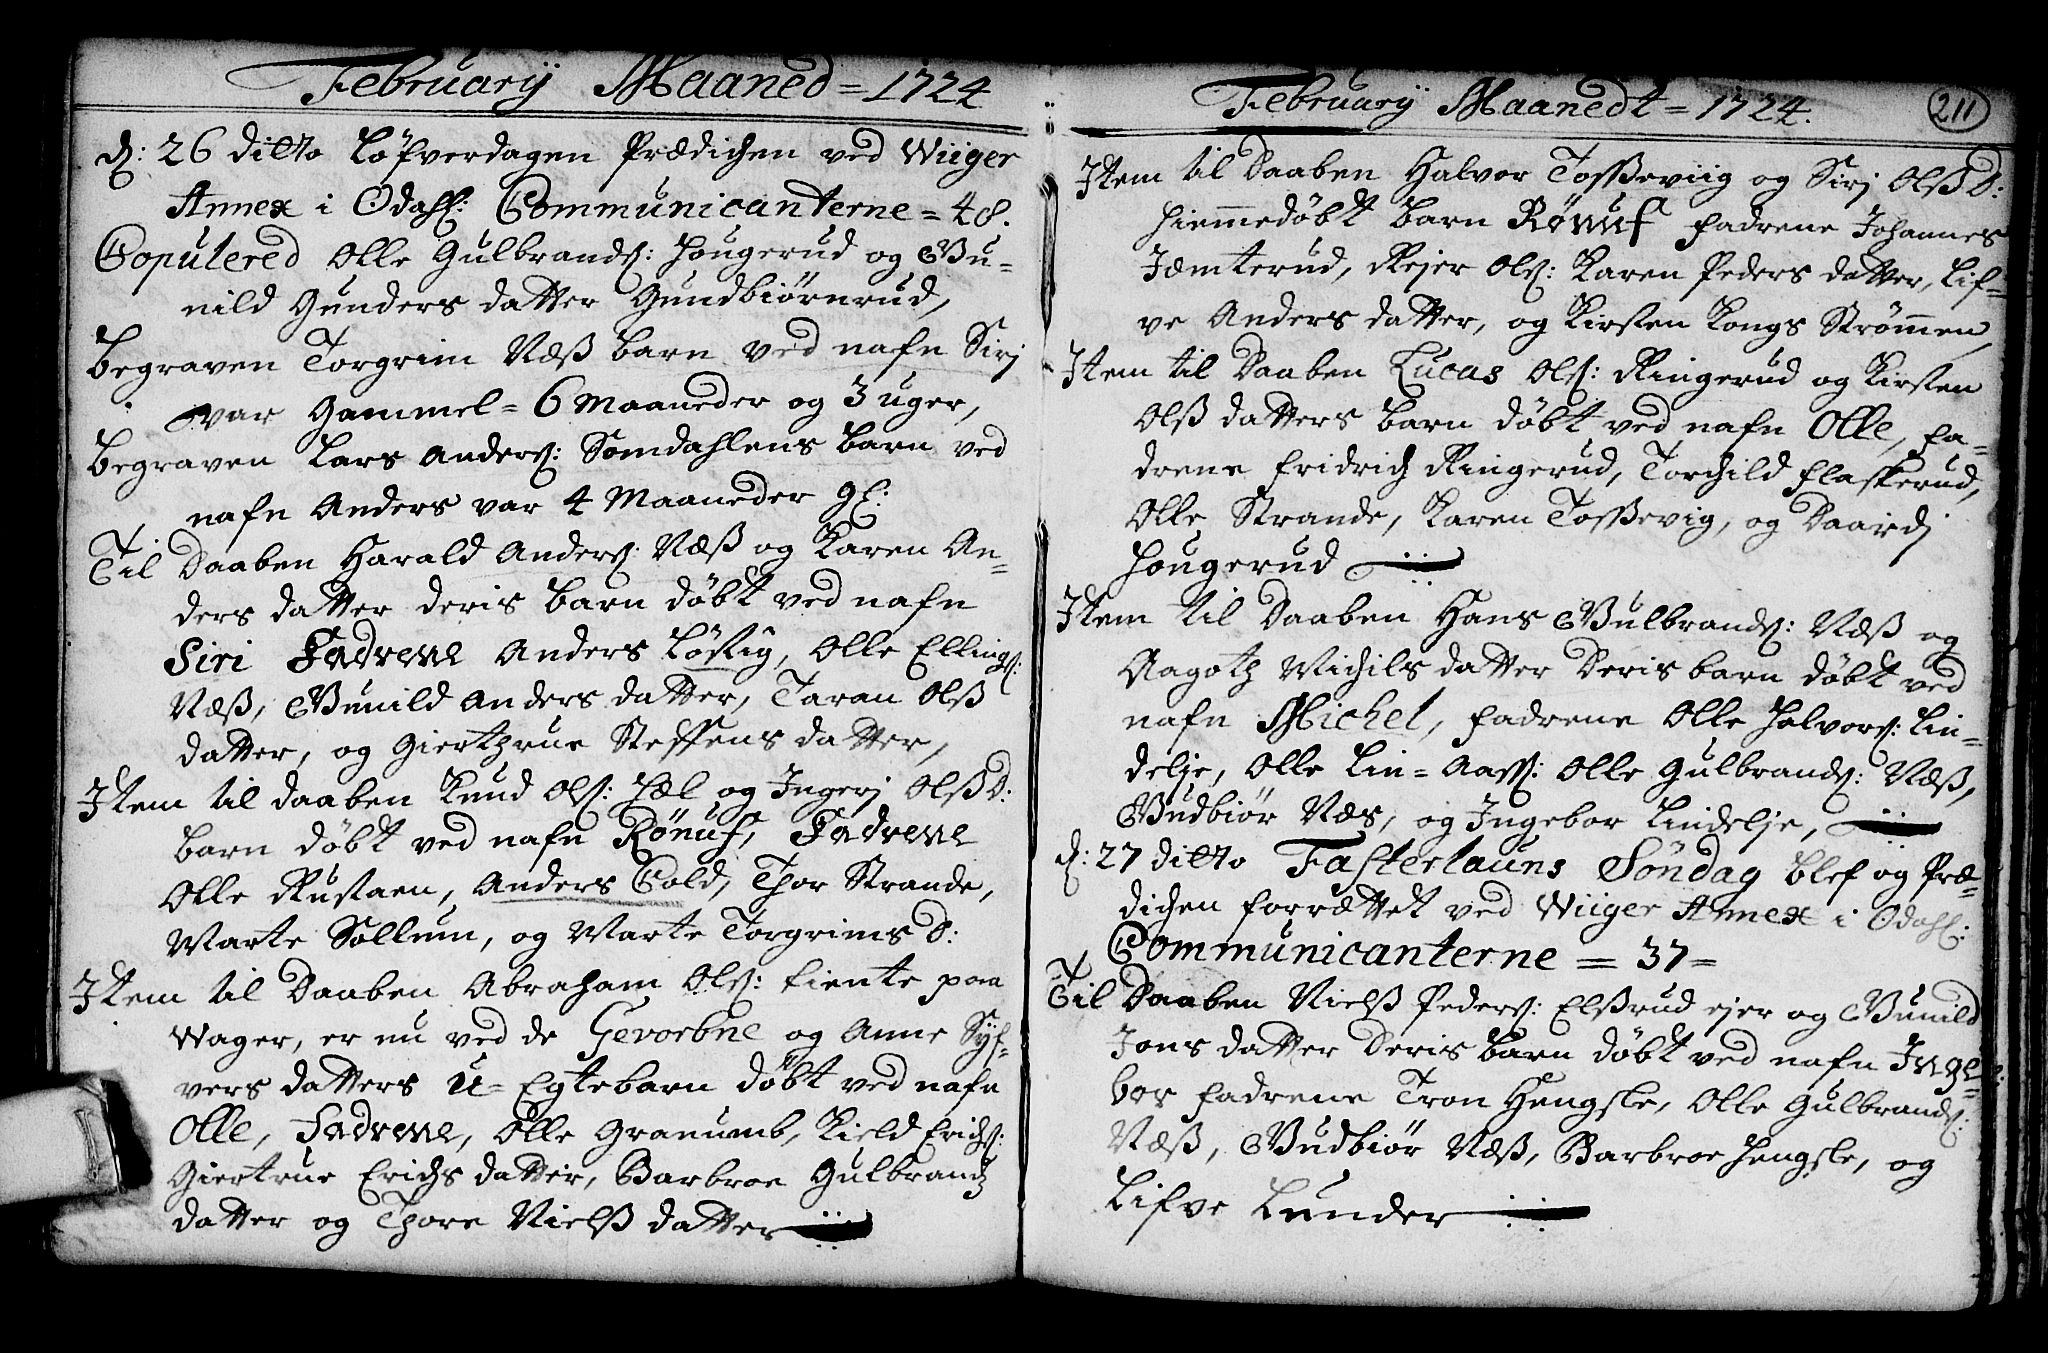 Februarij Maaned = 1724
d: 26 ditto Løfverdagen Prædichen ved Wiiger
Annex i Odahl: Communicanterne = 48.
Copulered Olle Gulbrands: Hougerud og Gu=
nild Gunders datter Gundbiørnrud,
Begraven Torgrim Næß barn ved nafn Siri
var Gammel = 6 Maaneder og 3 uger,
Begraven Lars Anders: Somdahlens barn ved
nafn Anders var 4 Maaneder gl:
Til Daaben Harald Anders: Næß og Karen An=
ders datter deris barn døbt ved nafn
Siri Fadrene Anders Løstig, Olle Ellings:
Næß, Gunild Anders datter, Taran Olß
datter, og Gierthrue Steffens datter,
Item til daaben Knud Ols: Hæl og Ingerj OlßD:
barn døbt ved nafn Rønuf, Fadrene
Olle Rustaen, Anders Cold, Thor Strande,
Marte Sollum, og Marte Torgrims D:
Item til Daaben Abraham Ols: tiente paa
Wager, er nu ved de Gevorbne og Anne Syf=
vers datters U=Egtebarn døbt ved nafn
Olle, Fadrene, Olle Granumb, Kield Erichs:
Giertrue Erichs datter, Barbroe Gulbrands
datter og Thore Nielß datter
Februarij Maanedt = 1724.
211
Item til Daaben Halvor Tosßeviig og Sirj OlßD:
Hiemmedøbt barn Rønuf fadrene Johannes
Jæmterud, Rejer Ols: Karen Peders datter, Lif=
ve Anders datter, og Kirsten Kongs Strømmen,
Item til Daaben Lucas Ols: Ringerud og Kirsten
Olß datters barn døbt ved nafn Olle, fa=
drene Fridrich Ringerud, Torchild Flaskerud,
Olle Strande, Karen Tosßevig, og Daardj
Hougerud
Item til Daaben Hans Gulbrands: Næß og
Aagoth Michils datter Deris barn døbt ved
nafn Michel, fadrene Olle Halvors: Lin=
delje, Olle Lin=Aass: Olle Gulbrands: Næß,
Gudbiør Næs, og Ingebor Lindelje,
d: 27 ditto Fasterlauns Søndag blef og Præ=
dichen forrættet ved Wiiger Annex i Odahl:
Communicanterne = 37 =
Til Daaben Nielß Peders: Elßrud ejer og Gunild
Jons datter Deris barn døbt ved nafn Inge=
bor fadrene Tron Hengsle, Olle Gulbrands:
Næß, Gudbiør Næß, Barbroe Hengsle, og
Lifve Lunder